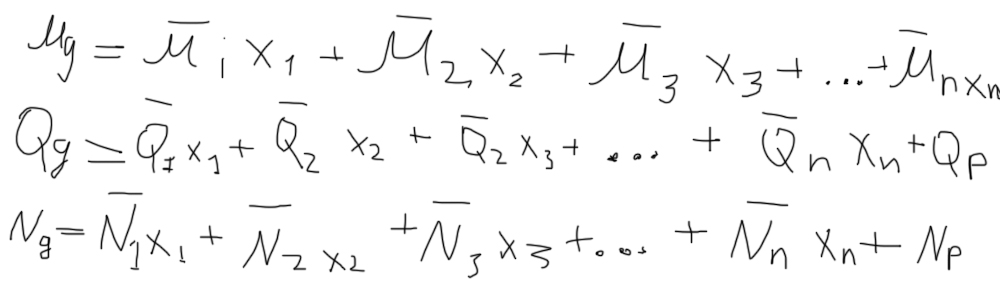 M_g = M̄_i x_1 + M̄_2 x_2 + M̄_3 x_3 + ... + M̄_n x_n
Q_g = Q̄_1 x_1 + Q̄_2 x_2 + Q̄_2 x_3 + ... + Q̄_n x_n + Q_p
N_g = N̄_1 x_1 + N̄_2 x_2 + N̄_3 x_3 + ... + N̄_n x_n + N_p